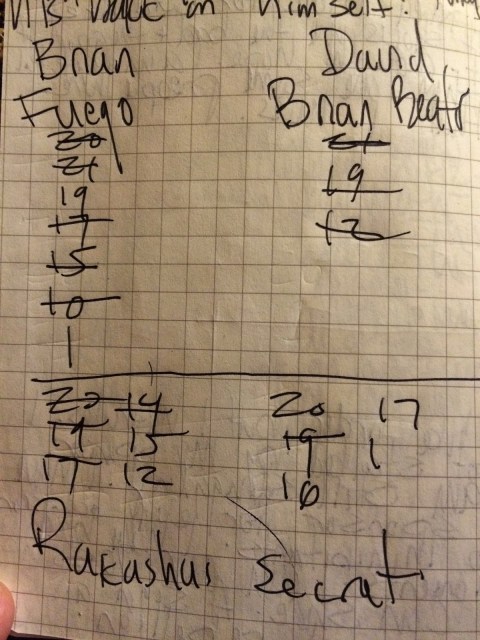 himself!
Brian David
Fuego Brian Beatr
20 21
21 19
19 12
17
15
10
1
20 14 20 17
19 15 19 1
17 12 16
Rakashas Secrat